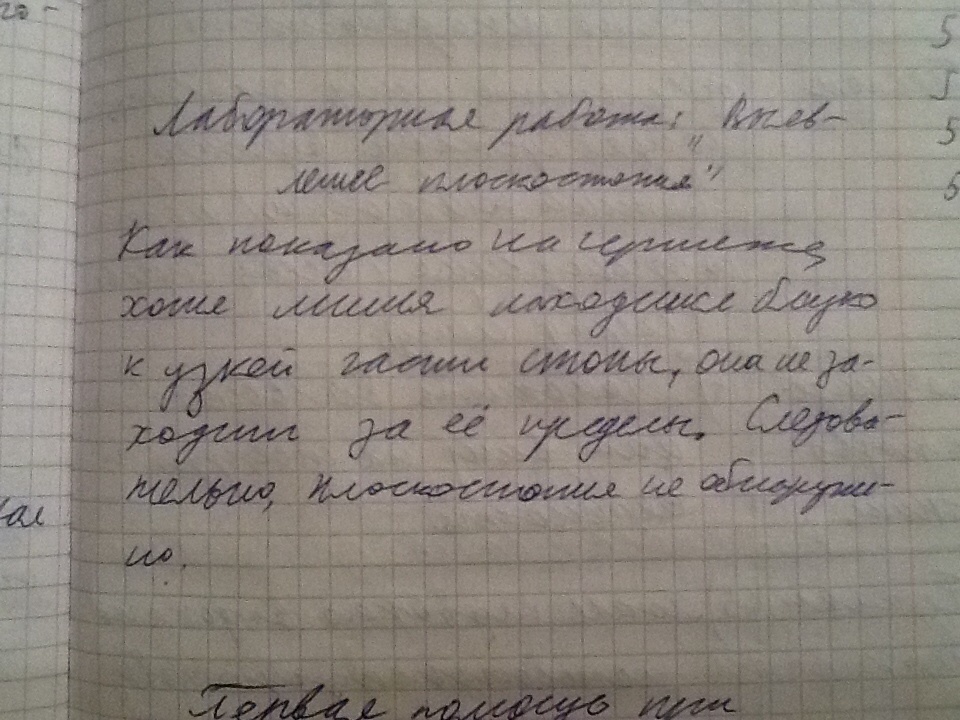 го-
Лабораторная работа: „Выяв-
ление плоскостопия"
Как показано на чертеже,
хотя линия находится близко
к узкой части стопы, она не за-
ходит за её пределы. Следова-
тельно, плоскостопия не обнаруже-
но.
Первая помощь при
5
5
5
5